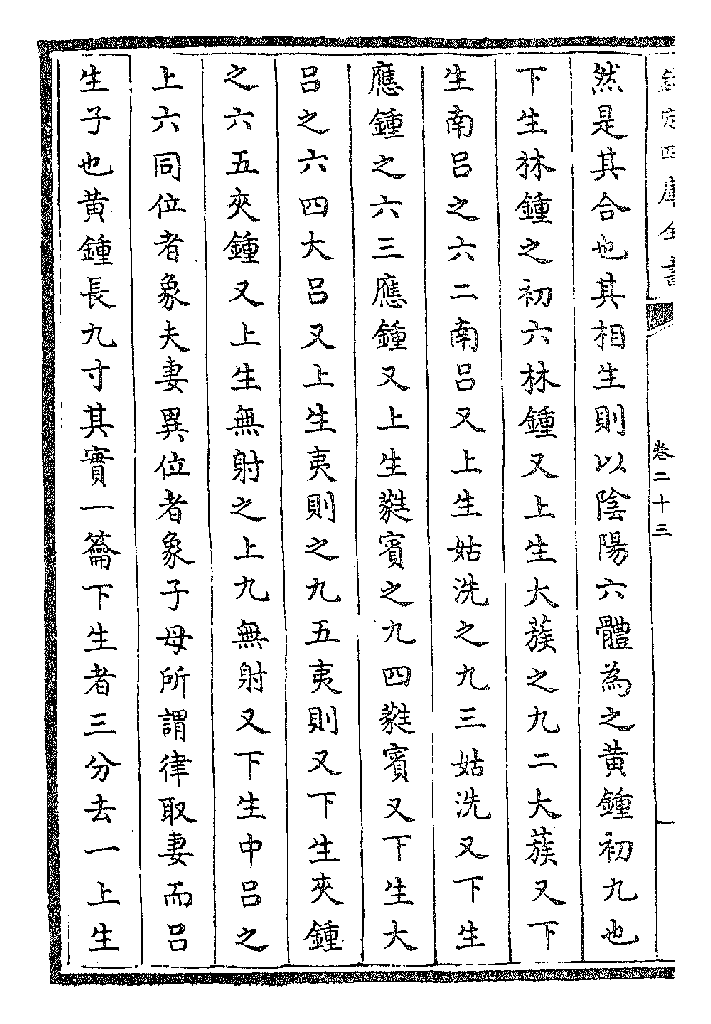 欽定四庫全書
卷二十三
然是其合也其相生則以陰陽六體為之黃鍾初九也
下生林鍾之初六林鍾又上生大蔟之九二大蔟又下
生南吕之六二南吕又上生姑洗之九三姑洗又下生
應鍾之六三應鍾又上生蕤賓之九四蕤賓又下生大
吕之六四大吕又上生夷則之九五夷則又下生夾鍾
之六五夾鍾又上生無射之上九無射又下生中吕之
上六同位者象夫妻異位者象子母所謂律取妻而吕
生子也黃鍾長九寸其實一籥下生者三分去一上生